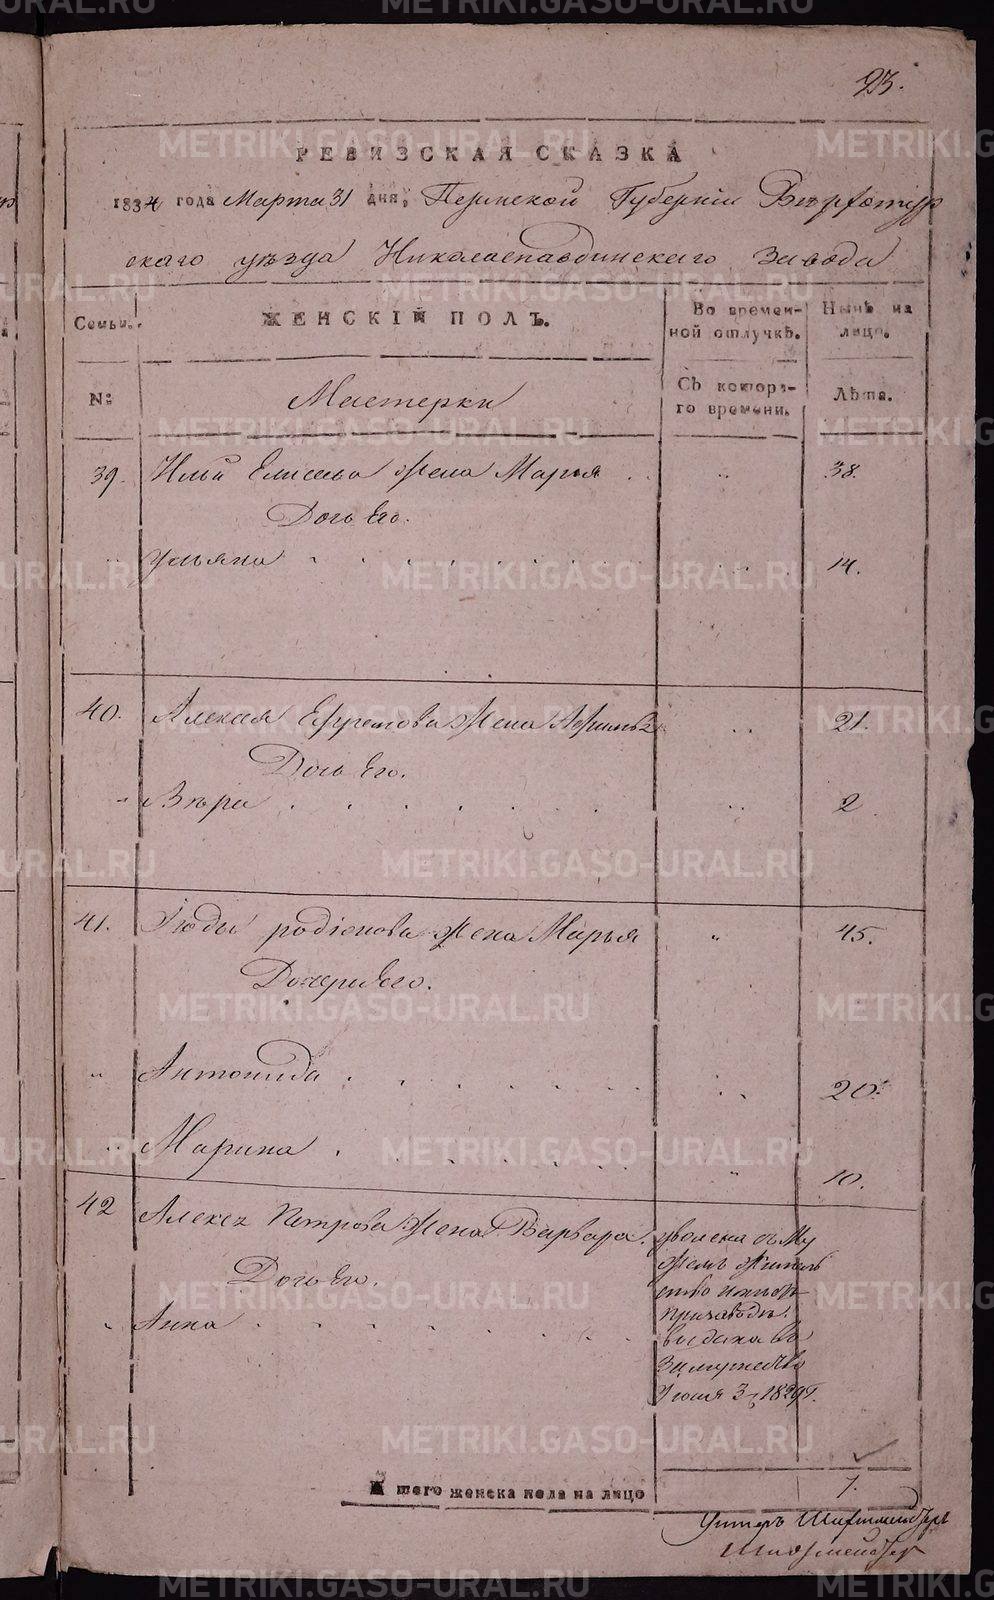 METRIKI.GASO-URAL.RU
23.
РЕВИЗСКАЯ СКАЗКА
1834 года Марта 31 дня, Пермской Губерніи Верхотур
скаго уѣзда Николаепавдинскаго Завода
Семьи.
ЖЕНСКІЙ ПОЛЪ.
Во времен-
ной отлучкѣ.
Нынѣ на
лицо.
№
Мастерки
Съ котора-
го времени.
Лѣта.
39. Ильи Елисеева Жена Марья 38.
Дочь Его.
Ульяна 14.
40. Алексея Ефремова Жена 21.
Дочь Его.
Вѣра 2
41. Июды родіонова Жена Марья 45.
Дочери Его.
Антонида 20.
Марина 10.
42 Алексея Петрова Жена Варвара. уволена съ Му
жемъ
Дочь Его.
Анна
призаводѣ.
выдана въ
Замужество
Июля 3, 1829 г.
И того женска пола на лицо 7.
Унтеръ Шихтмейстеръ